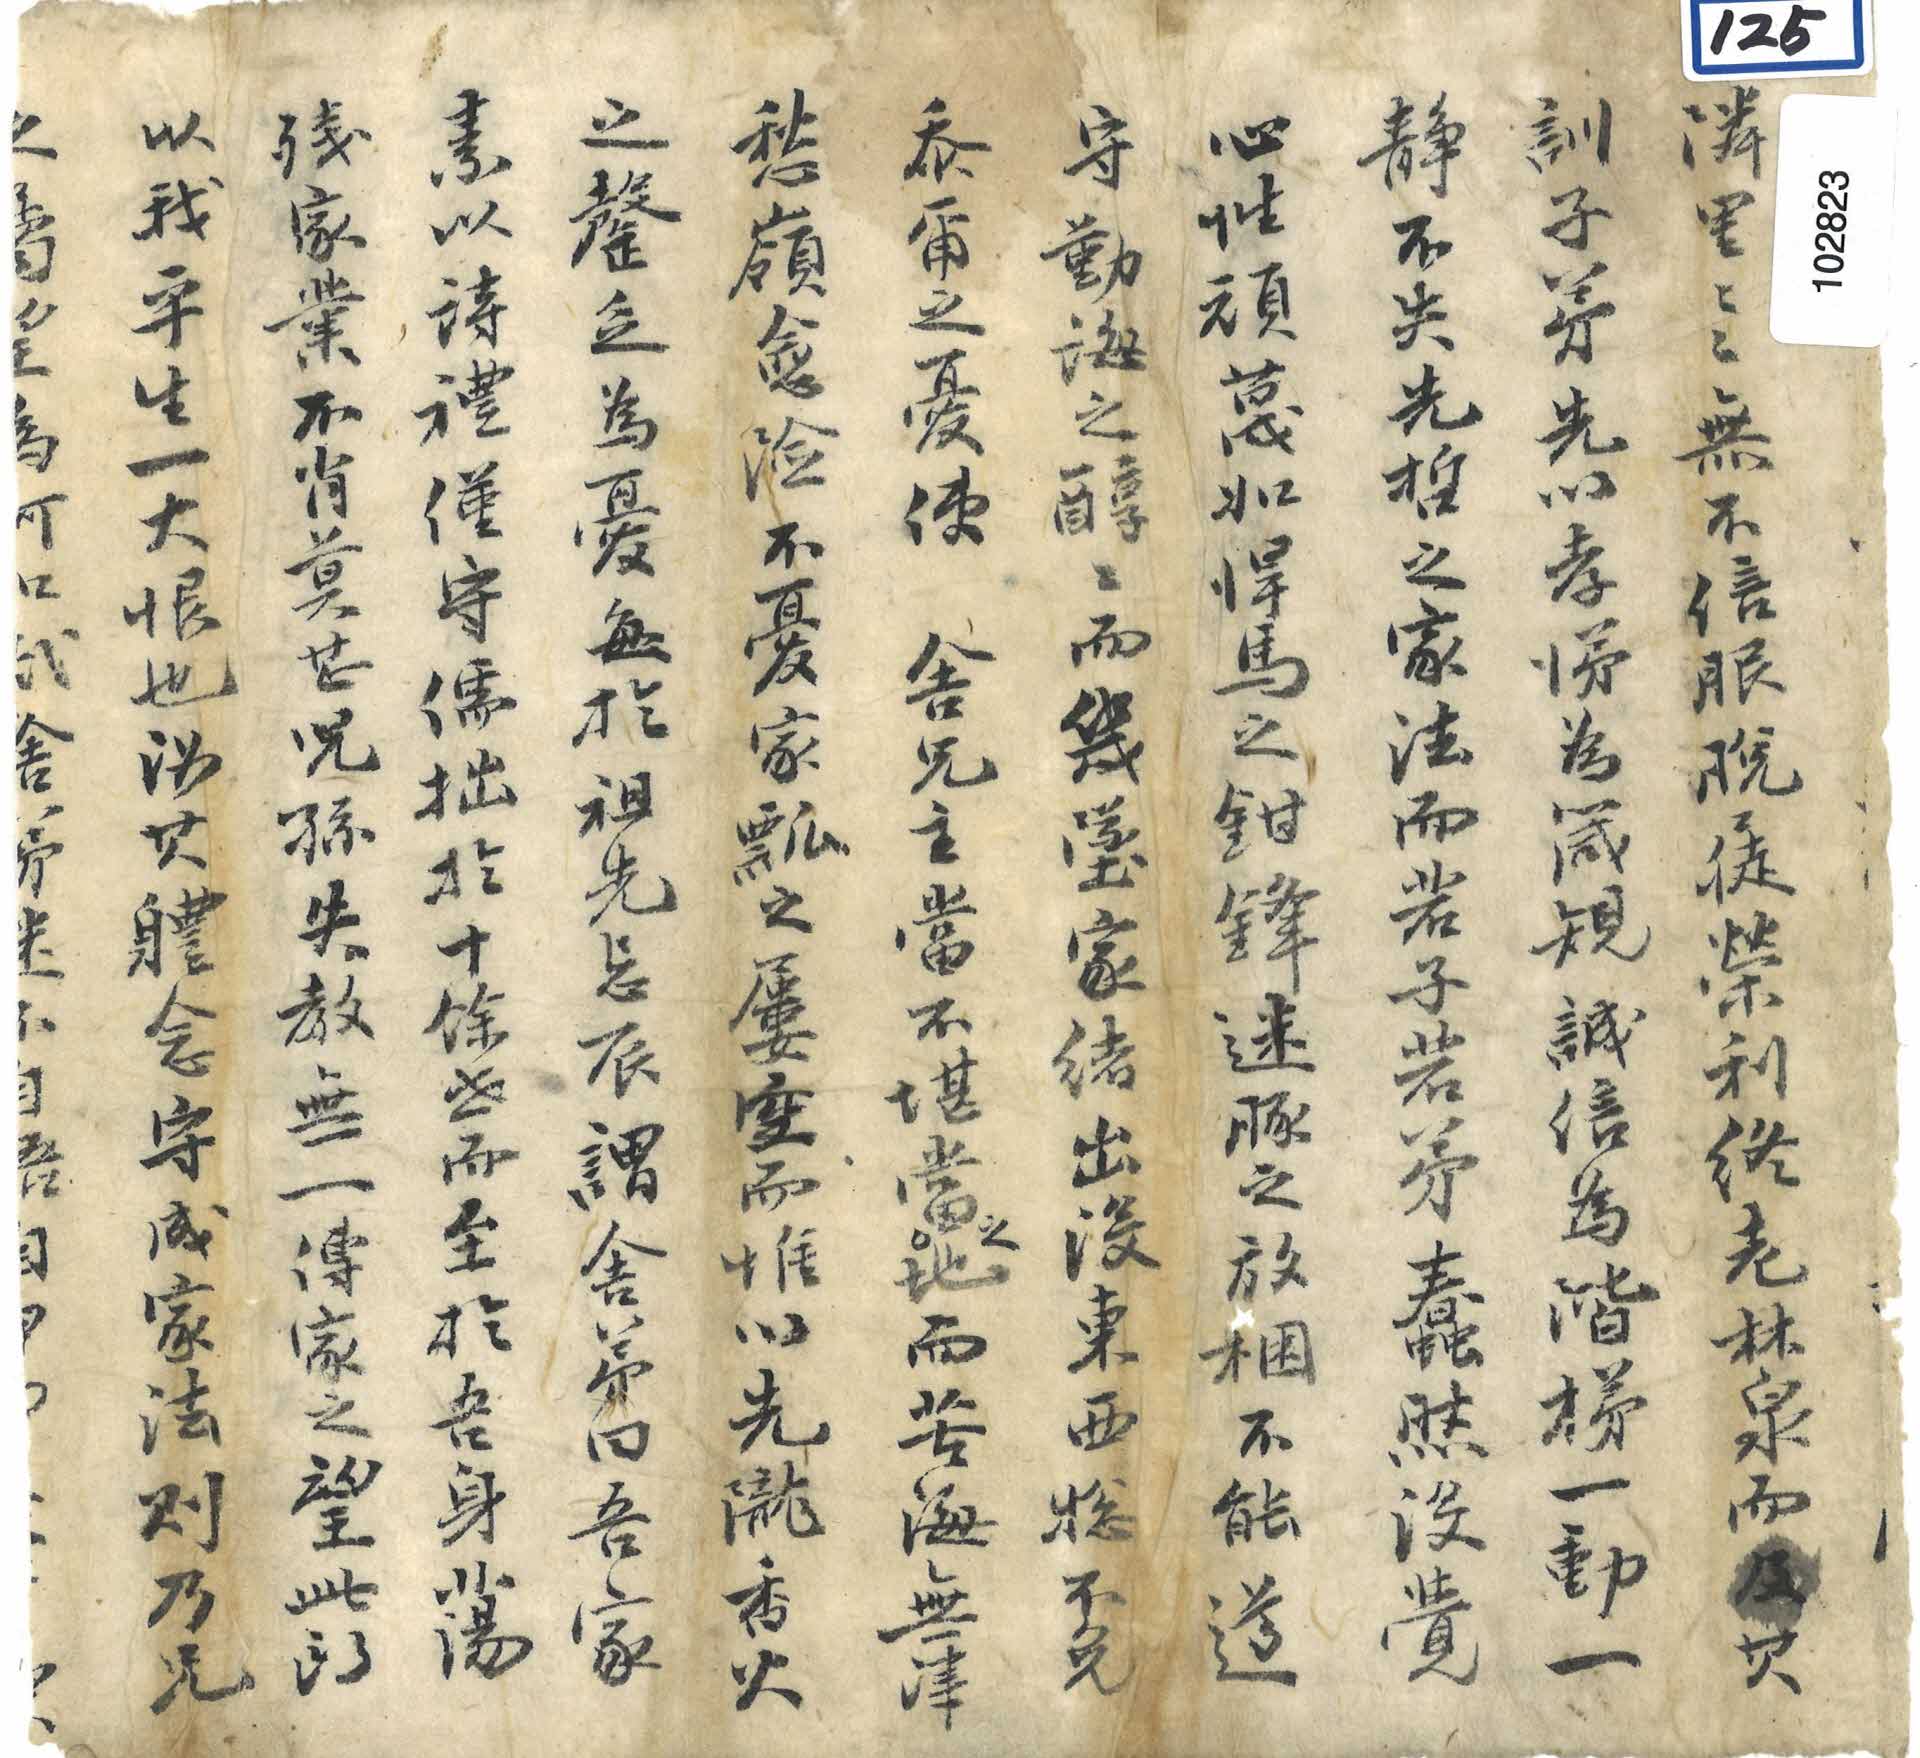 125
102823
隣里〻〻無不信服脫屣榮利終老林泉而及其
訓子弟先以孝悌為箴規誠信為階梯一動一
靜不失先哲之家法而若子若弟蠢然沒覺
心性頑蔑如悍馬之鉗鋒迷豚之放梱不能遵
守勤誨之醇〻而幾墜家緒出沒東西終不免
忝甭之憂使 舍兄主當不堪當之地而苦海無津
愁嶺愈險不憂家瓢之屢空而惟以先隴香火
之罄乏為憂每於祖先忌辰謂舍弟曰吾家
素以詩禮僅守儒拙於十餘世而至於吾身蕩
殘家業不肖莫甚況孫失教無一傳家之望此乃
以我平生一大恨也汝其體念守成家法則乃兄